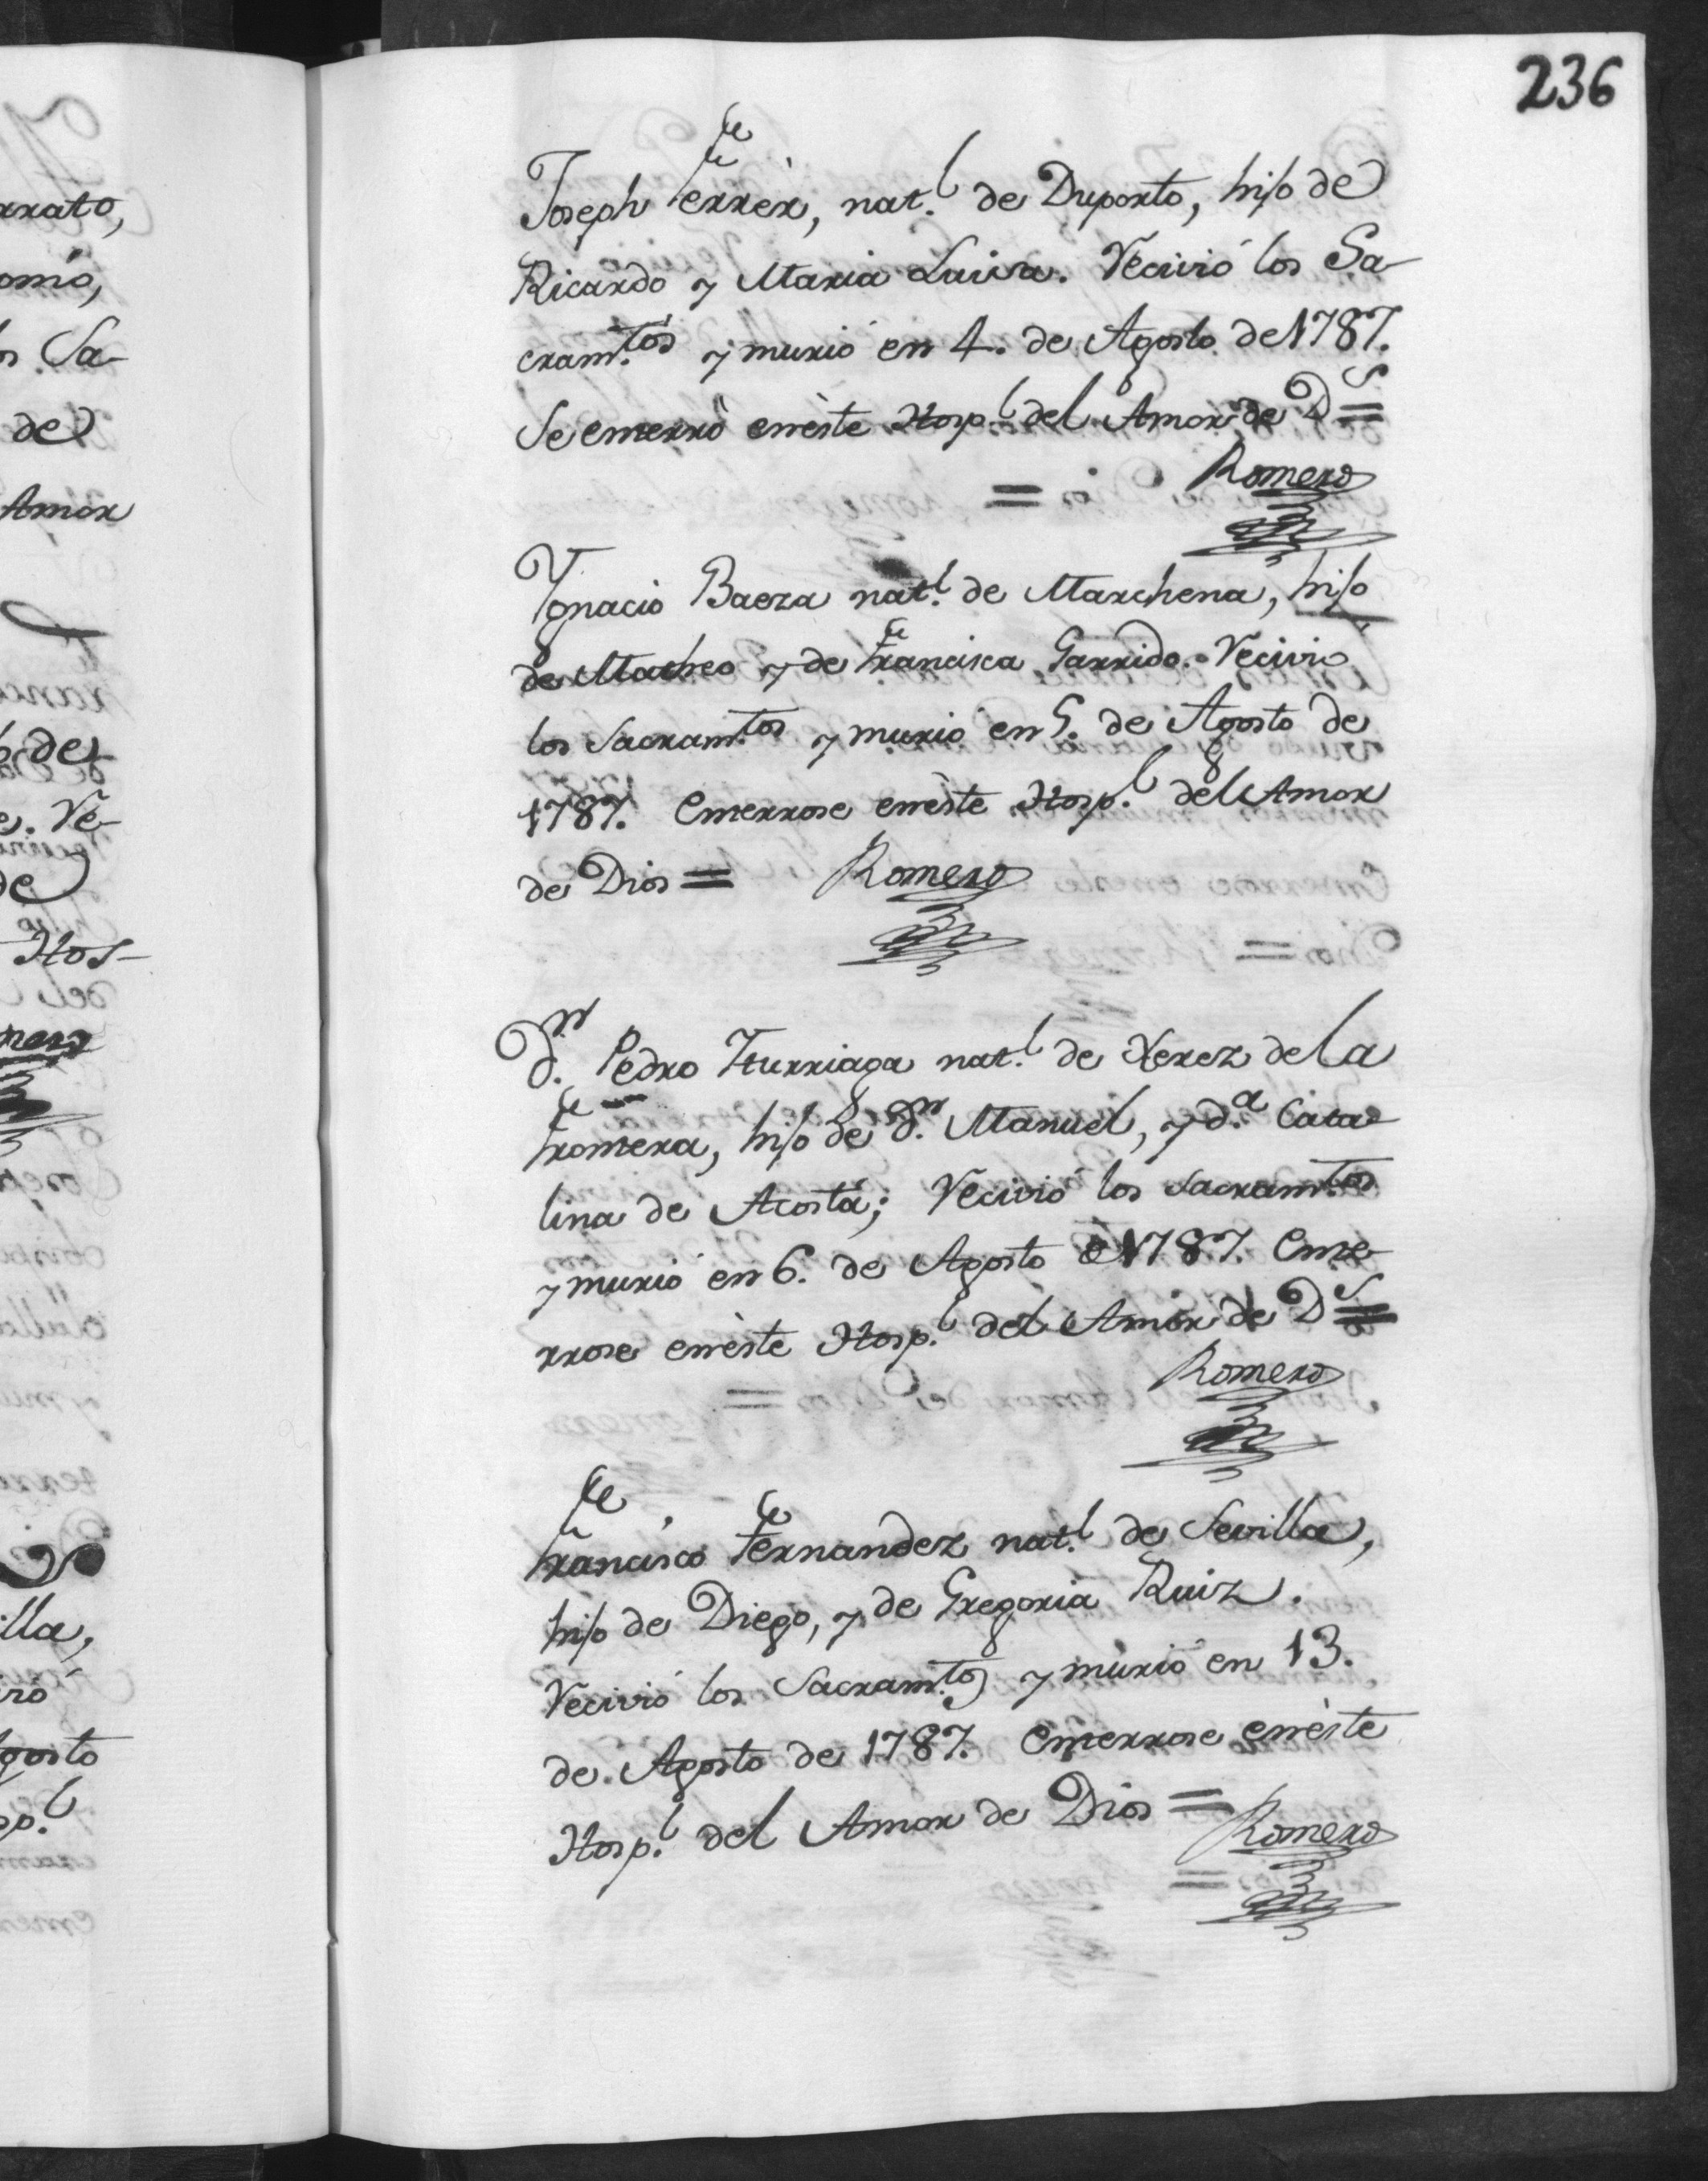 236
Joseph Ferrèr, nat.l de Duporto, hijo de
Ricardo y Maria Luisa. Recivió los Sa-
cram.tos y murió en 4. de Agosto de 1787.
Se enterrò en èste Hosp.l del Amor de D.s =
= Romero
Ygnacio Baeza nat.l de Marchena, hijo
de Matheo y de Francisca Garrido. Recivió
los Sacram.tos y murió en 5. de Agosto de
1787. Enterrose en èste Hosp.l del Amor
de Dios = Romero
D.n Pedro Yturriaga nat.l de Xerez de la
Frontera, hijo de D.n Manuel, y d.a Cata-
lina de Acosta; Recivió los Sacram.tos
y murió en 6. de Agosto de 1787. Ente-
rrose en èste Hosp.l del Amor de D.s =
Romero
Francisco Fernandez nat.l de Sevilla,
hijo de Diego, y de Gregoria Ruiz.
Recivió los Sacram.tos y murió en 13.
de Agosto de 1787. Enterrose en èste
Hosp.l del Amor de Dios = Romero